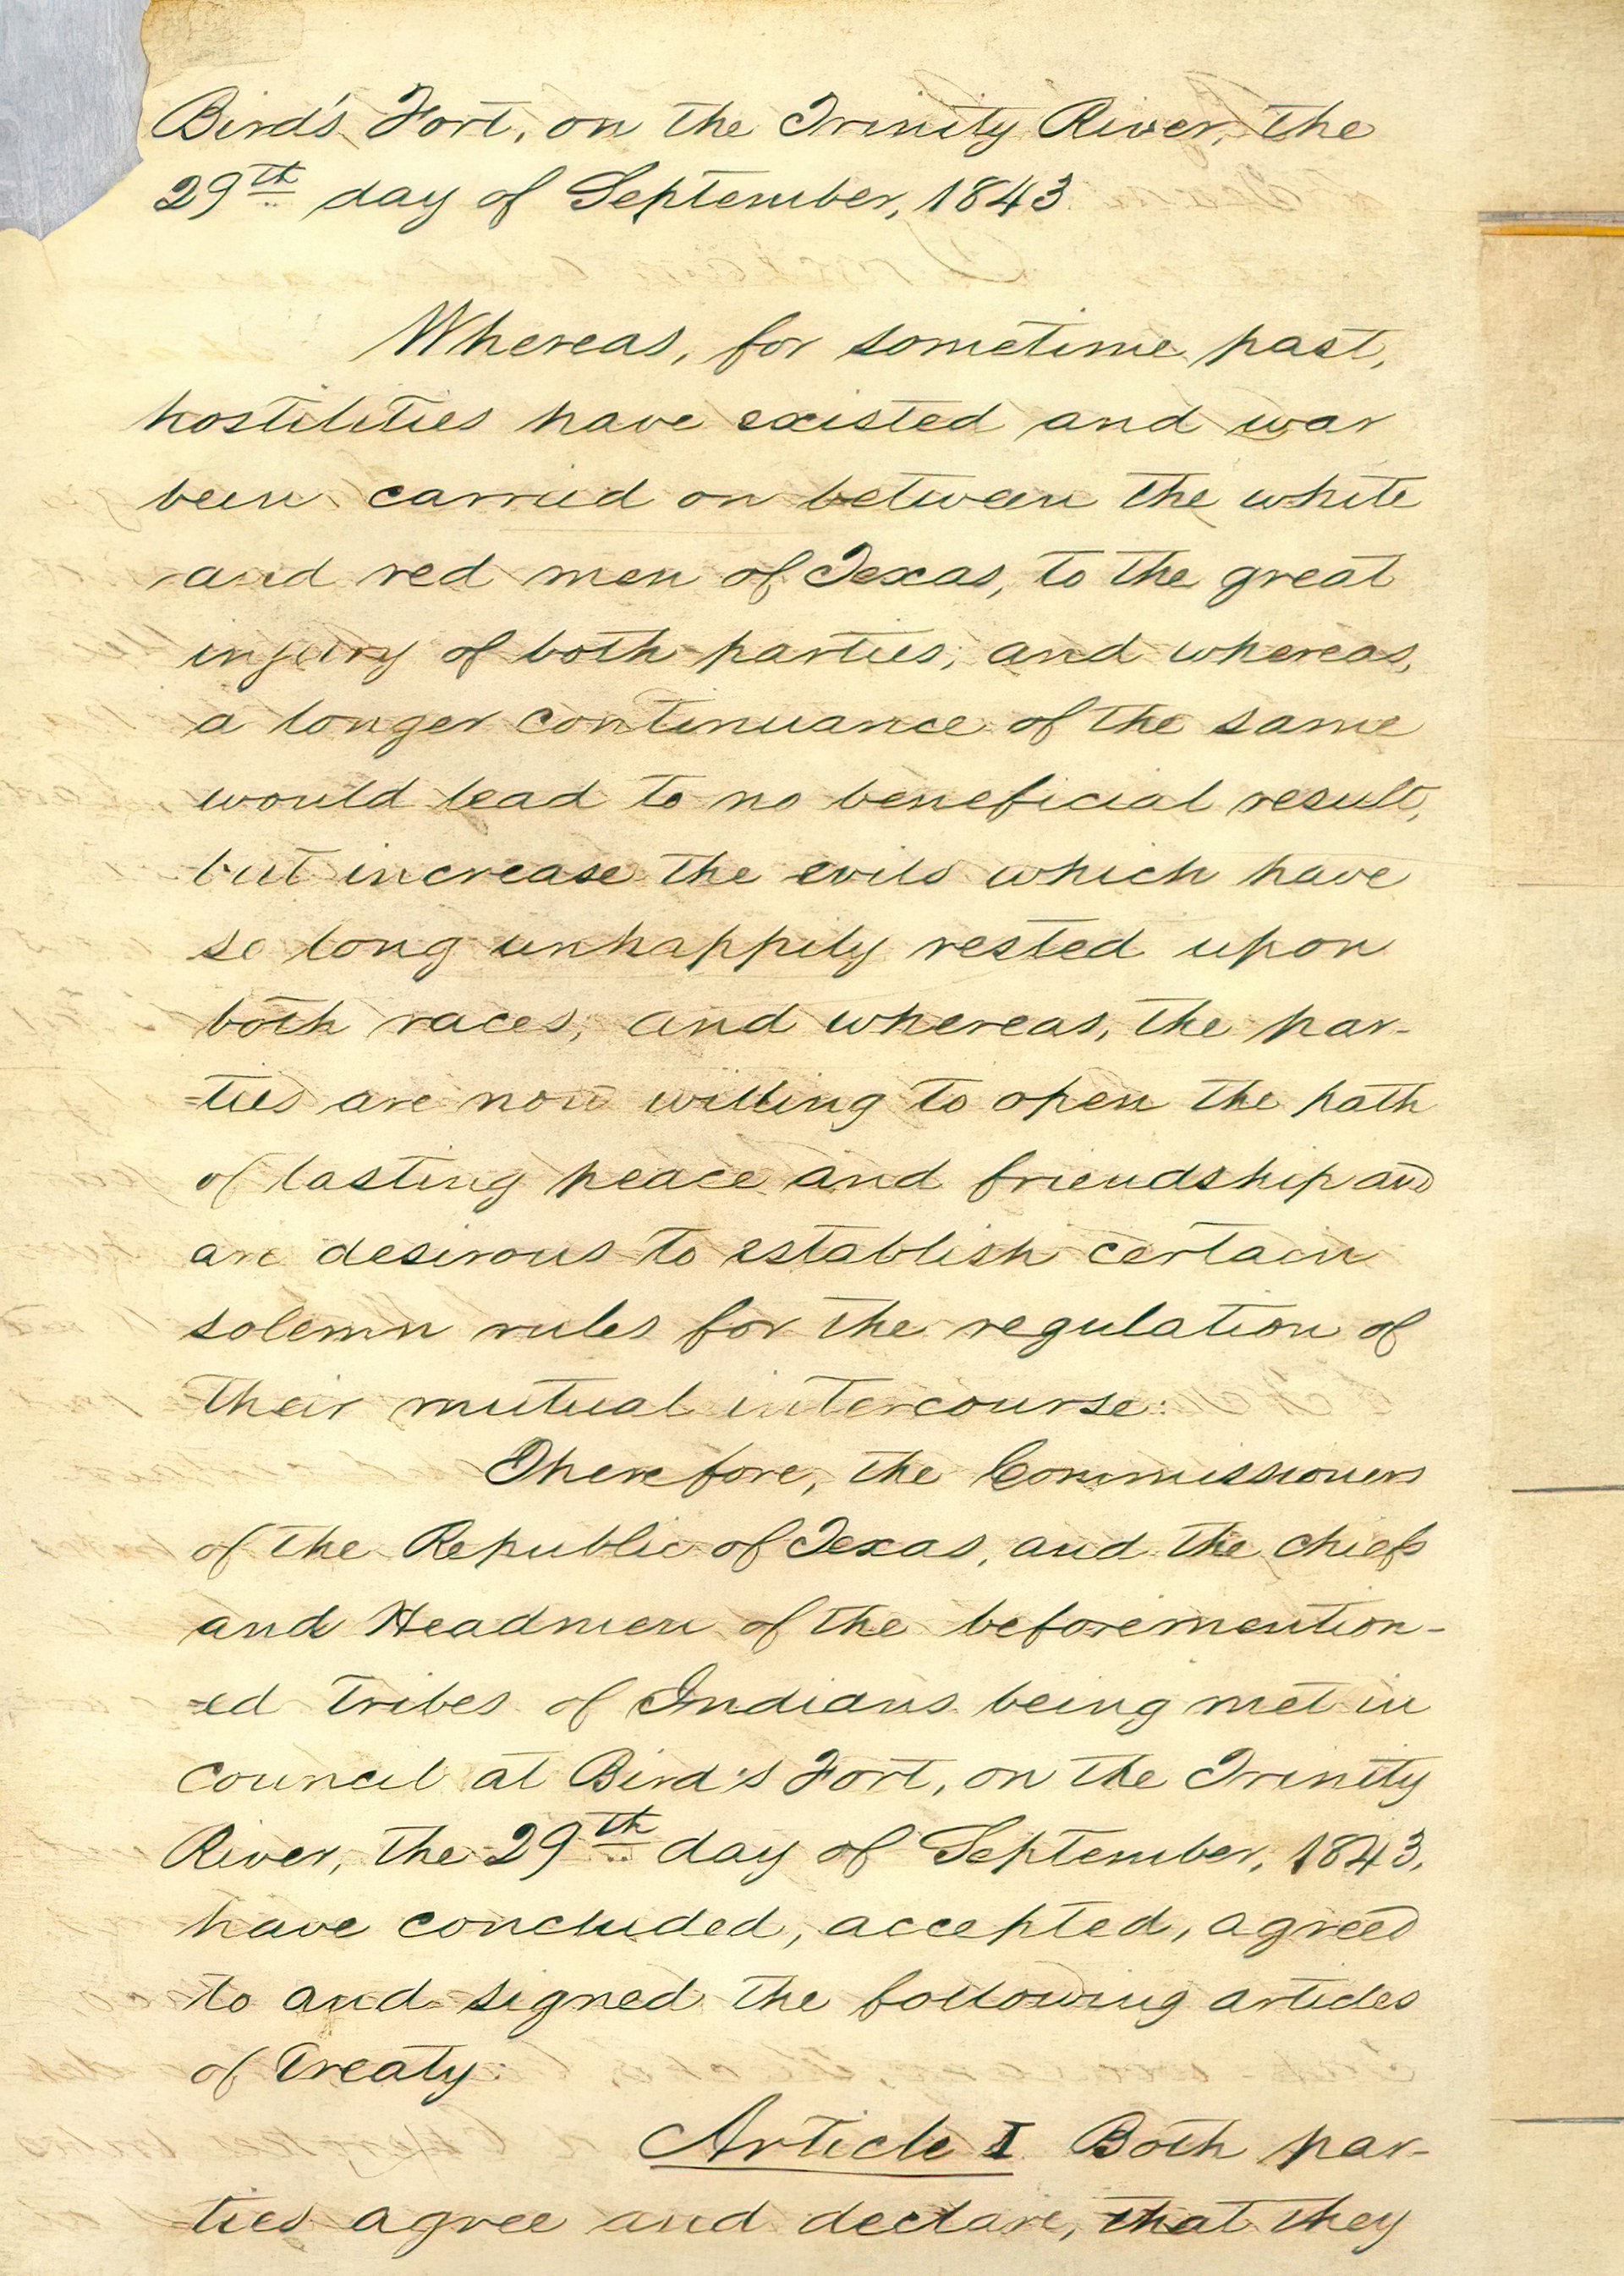 Bird's Fort, on the Trinity River, the
29th day of September, 1843.
Whereas, for sometime past,
hostilities have existed and war
been carried on between the white
and red men of Texas, to the great
injury of both parties; and whereas,
a longer continuance of the same
would lead to no beneficial result,
but increase the evils which have
so long unhappily rested upon
both races; and whereas, the par-
=ties are now willing to open the path
of lasting peace and friendship and
are desirous to establish certain
solemn rules for the regulation of
their mutual intercourse:
Therefore, the Commissioners
of the Republic of Texas, and the chiefs
and Headmen of the beforemention-
=ed Tribes of Indians being met in
council at Bird's Fort, on the Trinity
River, the 29th day of September, 1843,
have concluded, accepted, agreed
to and signed the following articles
of Treaty:
Article I. Both par-
ties agree and declare, that they